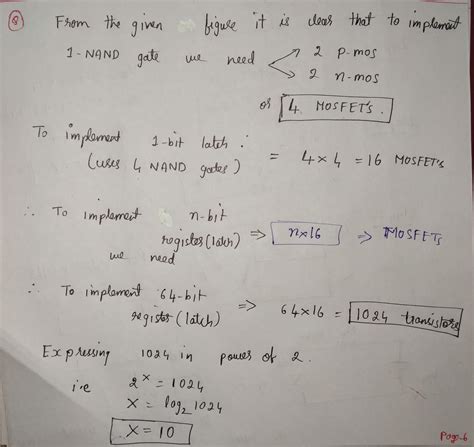 (8) From the given figure it is clear that to implement
1-NAND gate we need → 2 p-mos
→ 2 n-mos
or 4 MOSFET's.
To implement 1-bit latch :
(uses 4 NAND gates) = 4×4 = 16 MOSFET's
∴ To implement n-bit
register (latch) ⇒ n×16 ⇒ MOSFETs
we need
∴ To implement 64-bit
register (latch) ⇒ 64×16 = 1024 transistors
Expressing 1024 in power of 2.
i.e 2^x = 1024
x = log₂ 1024
x = 10
Page-6